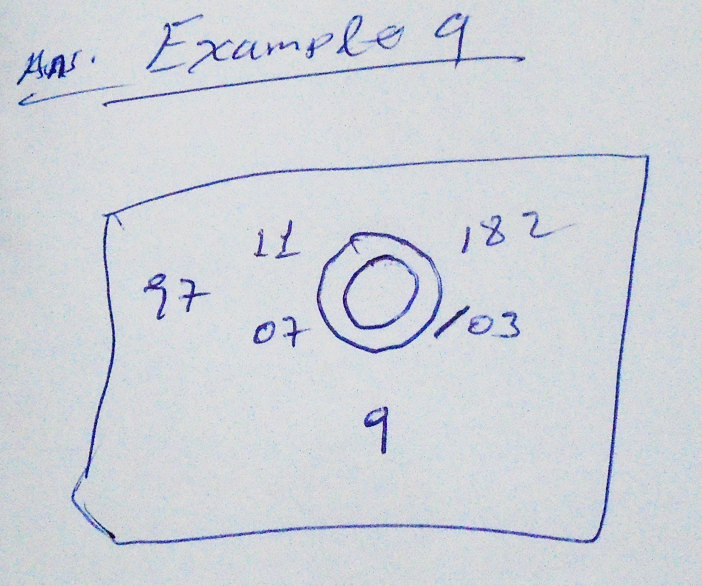 Ans. Example 9
11 182
97
07 /03
9